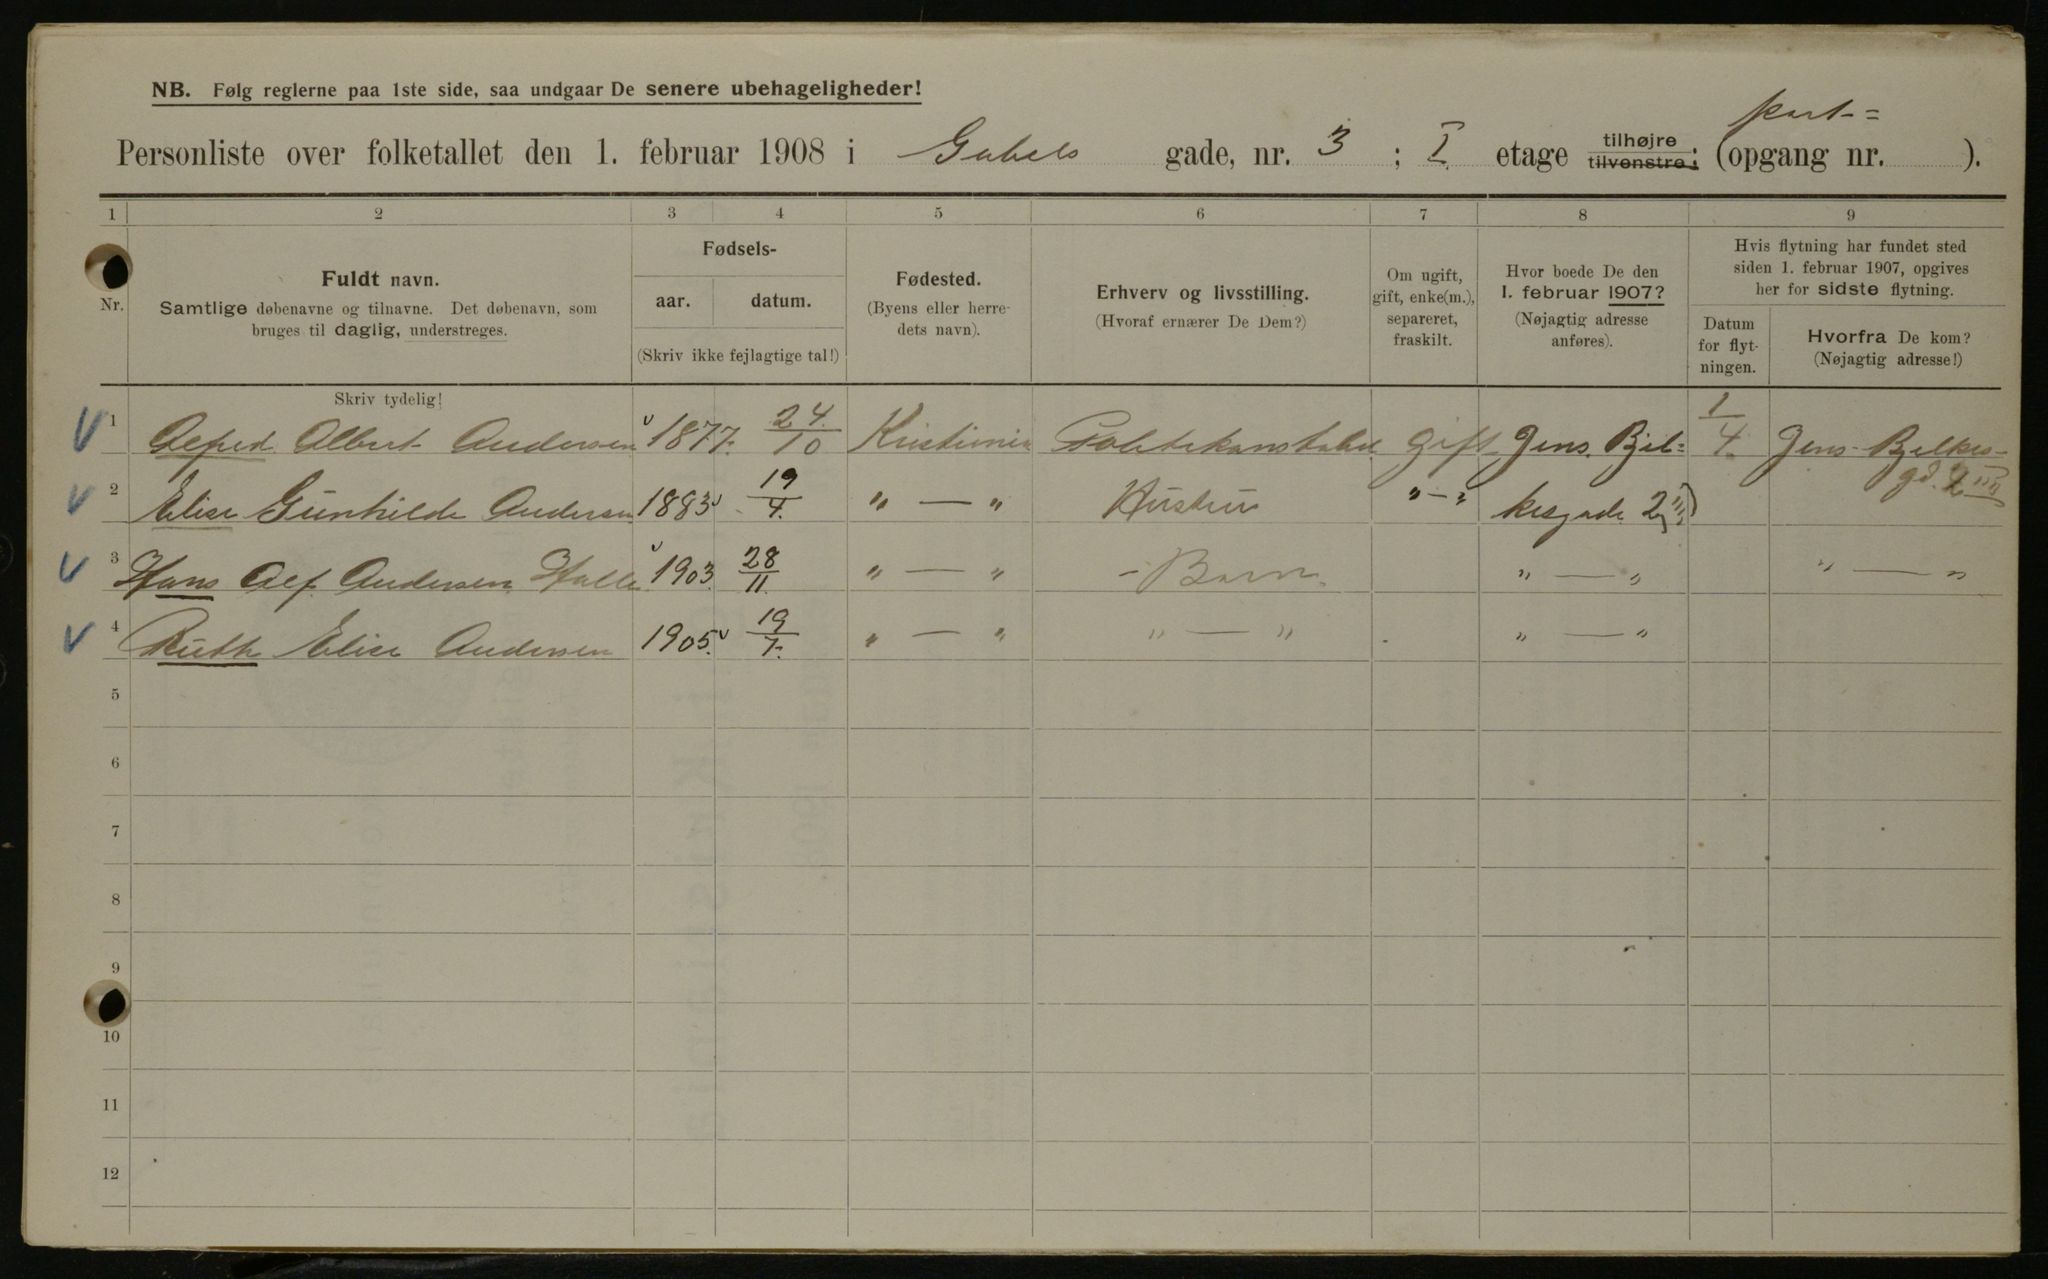 NB. Følg reglerne paa 1ste side, saa undgaar De senere ubehageligheder!
Personliste over folketallet den 1. februar 1908 i Gabels gade, nr. 3 ; I etage tilhøjre tilvenstre; (opgang nr. port- ).
1 2 3 4 5 6 7 8 9
Nr.
Fuldt navn.
Samtlige døbenavne og tilnavne. Det døbenavn, som
bruges til daglig, understreges.
Fødsels-
aar. datum.
(Skriv ikke fejlagtige tal!)
Fødested.
(Byens eller herre-
dets navn).
Erhverv og livsstilling.
(Hvoraf ernærer De Dem?)
Om ugift,
gift, enke(m.),
separeret,
fraskilt.
Hvor boede De den
1. februar 1907?
(Nøjagtig adresse
anføres).
Hvis flytning har fundet sted
siden 1. februar 1907, opgives
her for sidste flytning.
Datum
for flyt-
ningen.
Hvorfra De kom?
(Nøjagtig adresse!)
Skriv tydelig!
1 Alfred Albert Andersen 1877. 24/10 Kristiania Politikonstabel gift Jens Bjel- 1/4 Jens Bjelkes-
gd. 2 III
2 Elise Gunhilde Andersen 1883 19/4 " — " Hustru " — " kesgade 2 III
3 Hans Alf Andersen 1903 28/11 " — " - Barn " — " " — "
4 Ruth Elise Andersen 1905 19/7 " — " " — " " — "
5
6
7
8
9
10
11
12